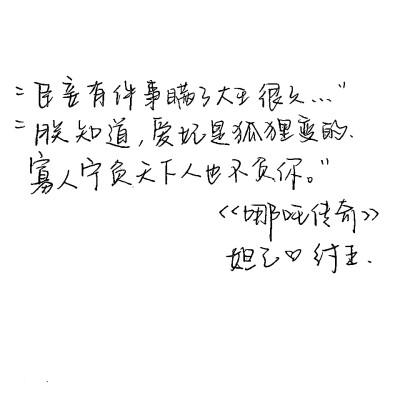 "臣妾有件事瞒了大王很久..."
"朕知道,爱妃是狐狸变的.
寡人宁负天下人也不负你。"
<<哪吒传奇>>
妲己♡纣王.